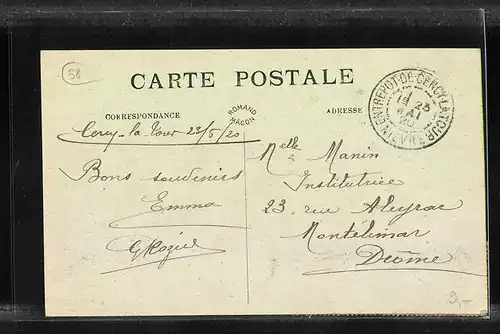 58
CARTE POSTALE
CORRESPONDANCE
ROMAND
MACON
ADRESSE
ENTREPOT-DE-CERCY-LA-TOUR
23
MAI
Cercy-la-Tour 23/5/20
Bons souvenirs
Emma
Melle Manin
Institutrice
23, rue Aleyrac
Montélimar
Drôme
9,-